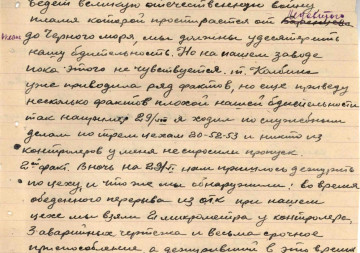 ведем великую отечественную войну
пламя которой простирается от
до Черного моря, мы должны удесятерить
нашу бдительность. Но на нашем заводе
пока этого не чувствуется. т. Колбина
уже приводила ряд фактов, но еще приведу
несколько фактов плохой нашей бдительности
так например 29/VIII я ходил по служебным
делам по трем цехам 20-52-53 и никто из
контролеров у меня не спросили пропуск.
2ой факт. В ночь на 29/ нам пришлось дежурить
по цеху, и что же мы обнаружили: во время
обеденного перерыва из отк при нашем
цехе мы взяли 2 микрометра у контролера,
3 аварийных чертежа и весьма срочное
приспособление а дежуривший в это время